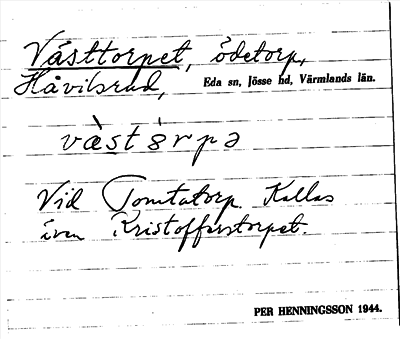 Västtorpet, ödetorp,
Håvilsrud, Eda sn, Jösse hd, Värmlands län.
vàst òrpə
Vid Tomtatorp Kallas
även Kristofferstorpet.
PER HENNINGSSON 1944.